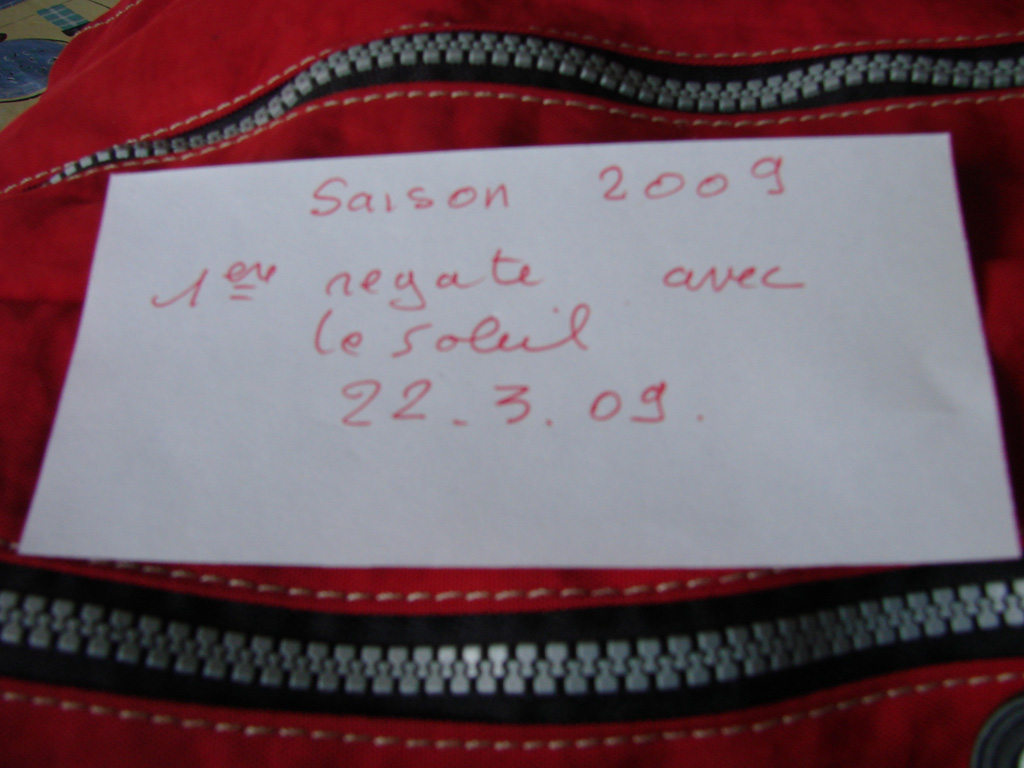 Saison 2009
1ere regate avec
le soleil
22.3.09.